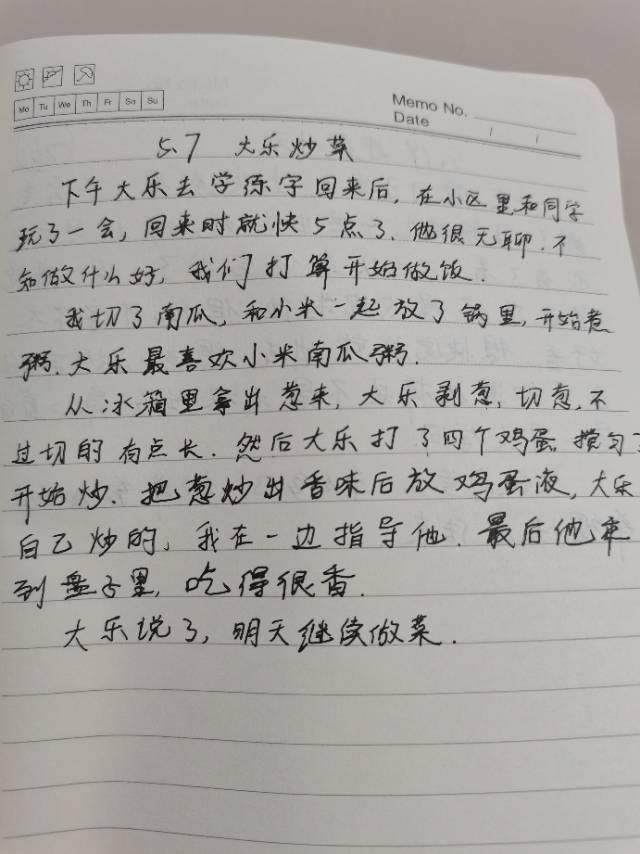 Mo Tu We Th Fr Sa Su
Memo No.
Date / /
5.7 大乐炒菜
下午大乐去学练字回来后，在小区里和同学
玩了一会，回来时就快5点了.他很无聊.不
知做什么好，我们打算开始做饭.
我切了南瓜，和小米一起放了锅里，开始煮
粥.大乐最喜欢小米南瓜粥.
从冰箱里拿出葱来，大乐剥葱，切葱，不
过切的有点长.然后大乐打了四个鸡蛋 搅匀了
开始炒.把葱炒出香味后放鸡蛋液，大乐
自己炒的，我在一边指导他.最后他
到盘子里，吃得很香.
大乐说了，明天继续做菜.